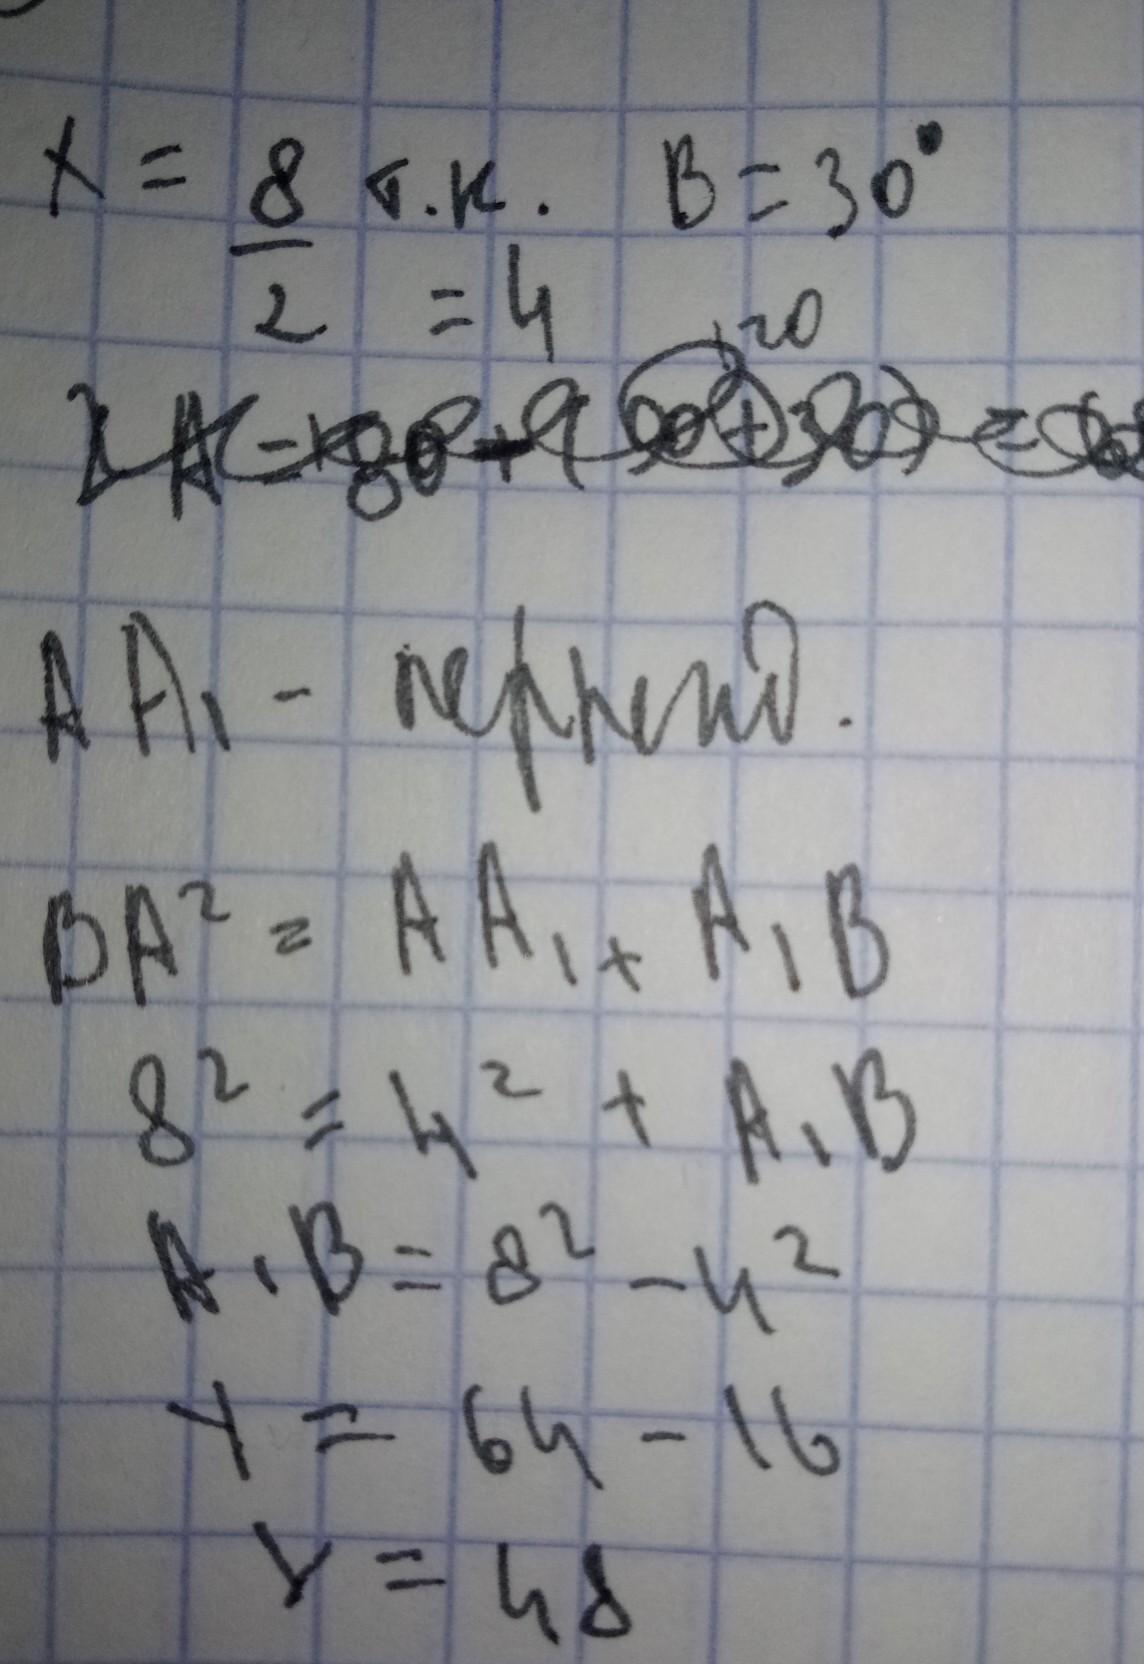 x = 8/2 т.к. B = 30°
= 4
120
AA₁ - перпенд.
BA² = AA₁ + A₁B
8² = 4² + A₁B
A₁B = 8² - 4²
Y = 64 - 16
Y = 48